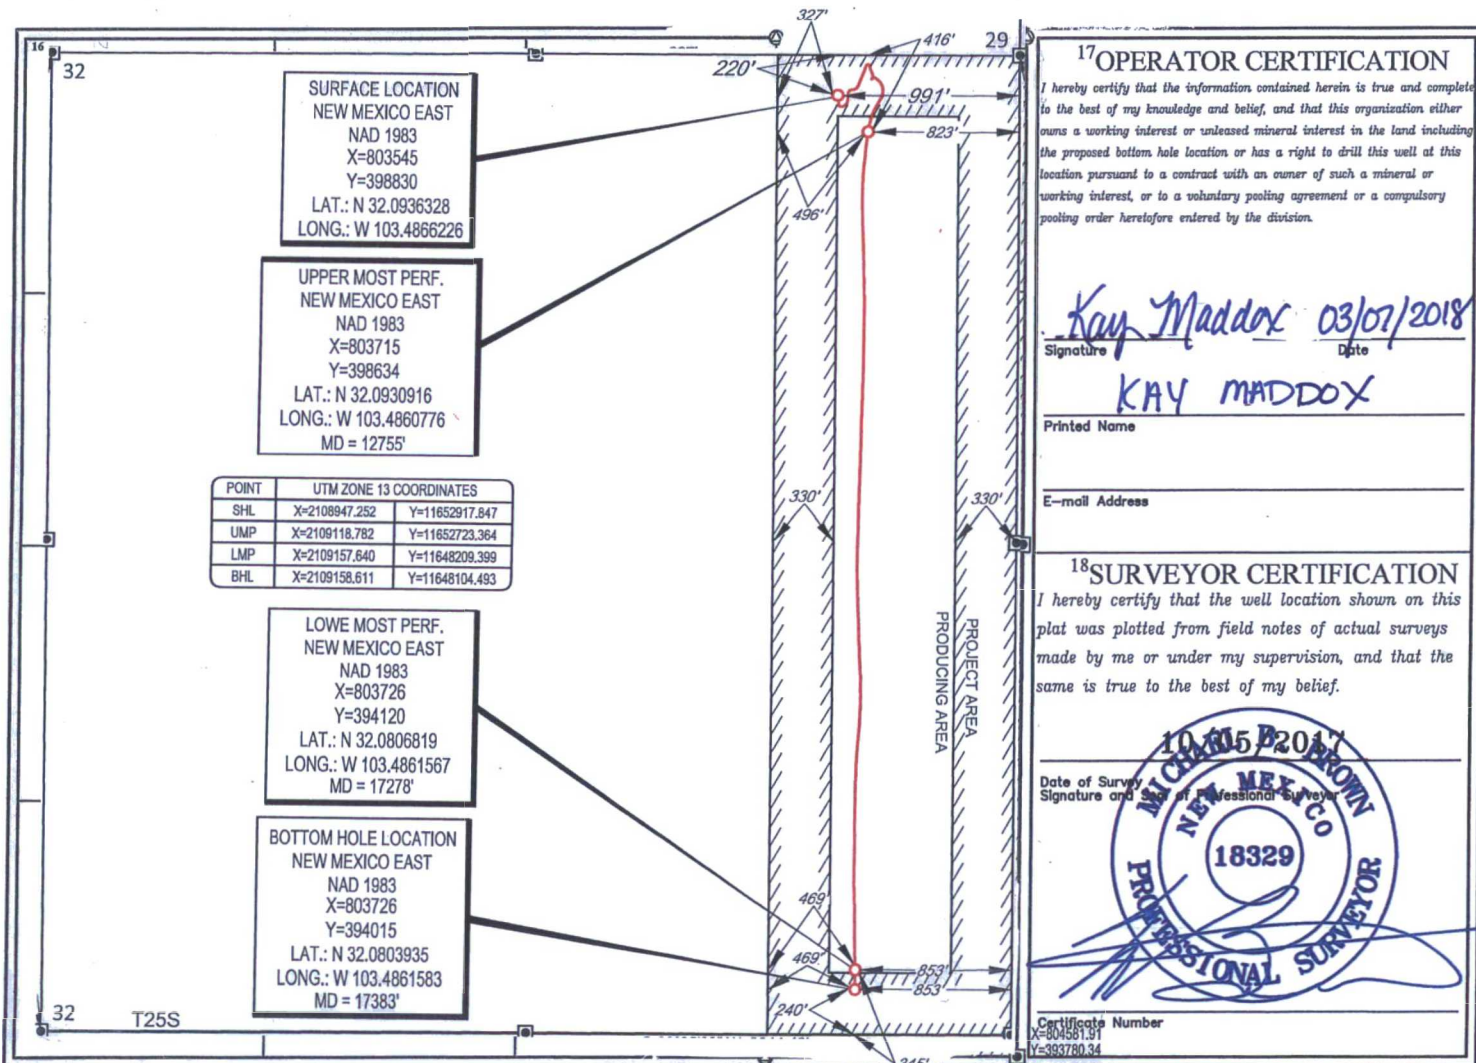 16
32
29
327'
416'
220'
991'
823'
496'
SURFACE LOCATION
NEW MEXICO EAST
NAD 1983
X=803545
Y=398830
LAT.: N 32.0936328
LONG.: W 103.4866226
UPPER MOST PERF.
NEW MEXICO EAST
NAD 1983
X=803715
Y=398634
LAT.: N 32.0930916
LONG.: W 103.4860776
MD = 12755'
POINT UTM ZONE 13 COORDINATES
SHL X=2108947.252 Y=11652917.847
UMP X=2109118.782 Y=11652723.364
LMP X=2109157.640 Y=11648209.399
BHL X=2109158.611 Y=11648104.493
330'
330'
PRODUCING AREA
PROJECT AREA
LOWE MOST PERF.
NEW MEXICO EAST
NAD 1983
X=803726
Y=394120
LAT.: N 32.0806819
LONG.: W 103.4861567
MD = 17278'
BOTTOM HOLE LOCATION
NEW MEXICO EAST
NAD 1983
X=803726
Y=394015
LAT.: N 32.0803935
LONG.: W 103.4861583
MD = 17383'
469'
469'
853'
853'
240'
345'
32
T25S
17 OPERATOR CERTIFICATION
I hereby certify that the information contained herein is true and complete
to the best of my knowledge and belief, and that this organization either
owns a working interest or unleased mineral interest in the land including
the proposed bottom hole location or has a right to drill this well at this
location pursuant to a contract with an owner of such a mineral or
working interest, or to a voluntary pooling agreement or a compulsory
pooling order heretofore entered by the division.
Kay Maddox 03/07/2018
Signature Date
KAY MADDOX
Printed Name
E-mail Address
18 SURVEYOR CERTIFICATION
I hereby certify that the well location shown on this
plat was plotted from field notes of actual surveys
made by me or under my supervision, and that the
same is true to the best of my belief.
10/05/2017
Date of Survey
Signature and Seal of Professional Surveyor
MICHAEL B. BROWN
NEW MEXICO
18329
PROFESSIONAL SURVEYOR
Certificate Number
X=804581.91
Y=393780.34